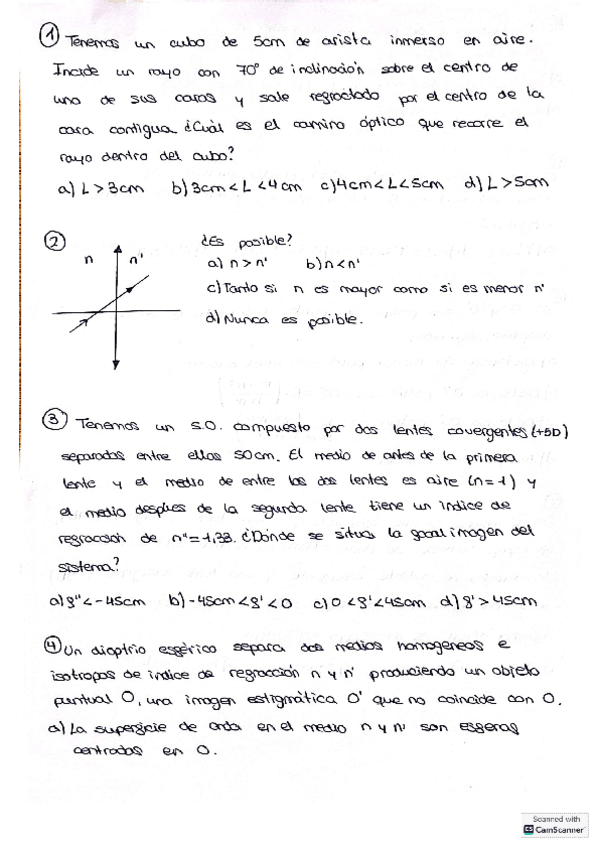 ① Tenemos un cubo de 5cm de arista inmerso en aire.
Incide un rayo con 70° de inclinación sobre el centro de
una de sus caras y sale refractado por el centro de la
cara contigua. ¿Cuál es el camino óptico que recorre el
rayo dentro del cubo?
a) L > 3cm b) 3cm < L < 4cm c) 4cm < L < 5cm d) L > 5cm
②
n n'
¿Es posible?
a) n > n' b) n < n'
c) Tanto si n es mayor como si es menor n'
d) Nunca es posible.
③ Tenemos un S.O. compuesto por dos lentes covergentes (+5D)
separadas entre ellas 50cm. El medio de antes de la primera
lente y el medio de entre las dos lentes es aire (n=1) y
el medio despues de la segunda lente tiene un índice de
refracción de n''=1,33. ¿Dónde se situa la focal imagen del
sistema?
a) f'' < -45cm b) -45cm < f' < 0 c) 0 < f' < 45cm d) f' > 45cm
④ Un dioptrio esférico separa dos medios homogéneos e
isotropos de índice de refracción n y n' produciendo un objeto
puntual O, una imagen estigmática O' que no coincide con O.
a) La superficie de onda en el medio n y n' son esferas
centradas en O.
Scanned with
CS CamScanner